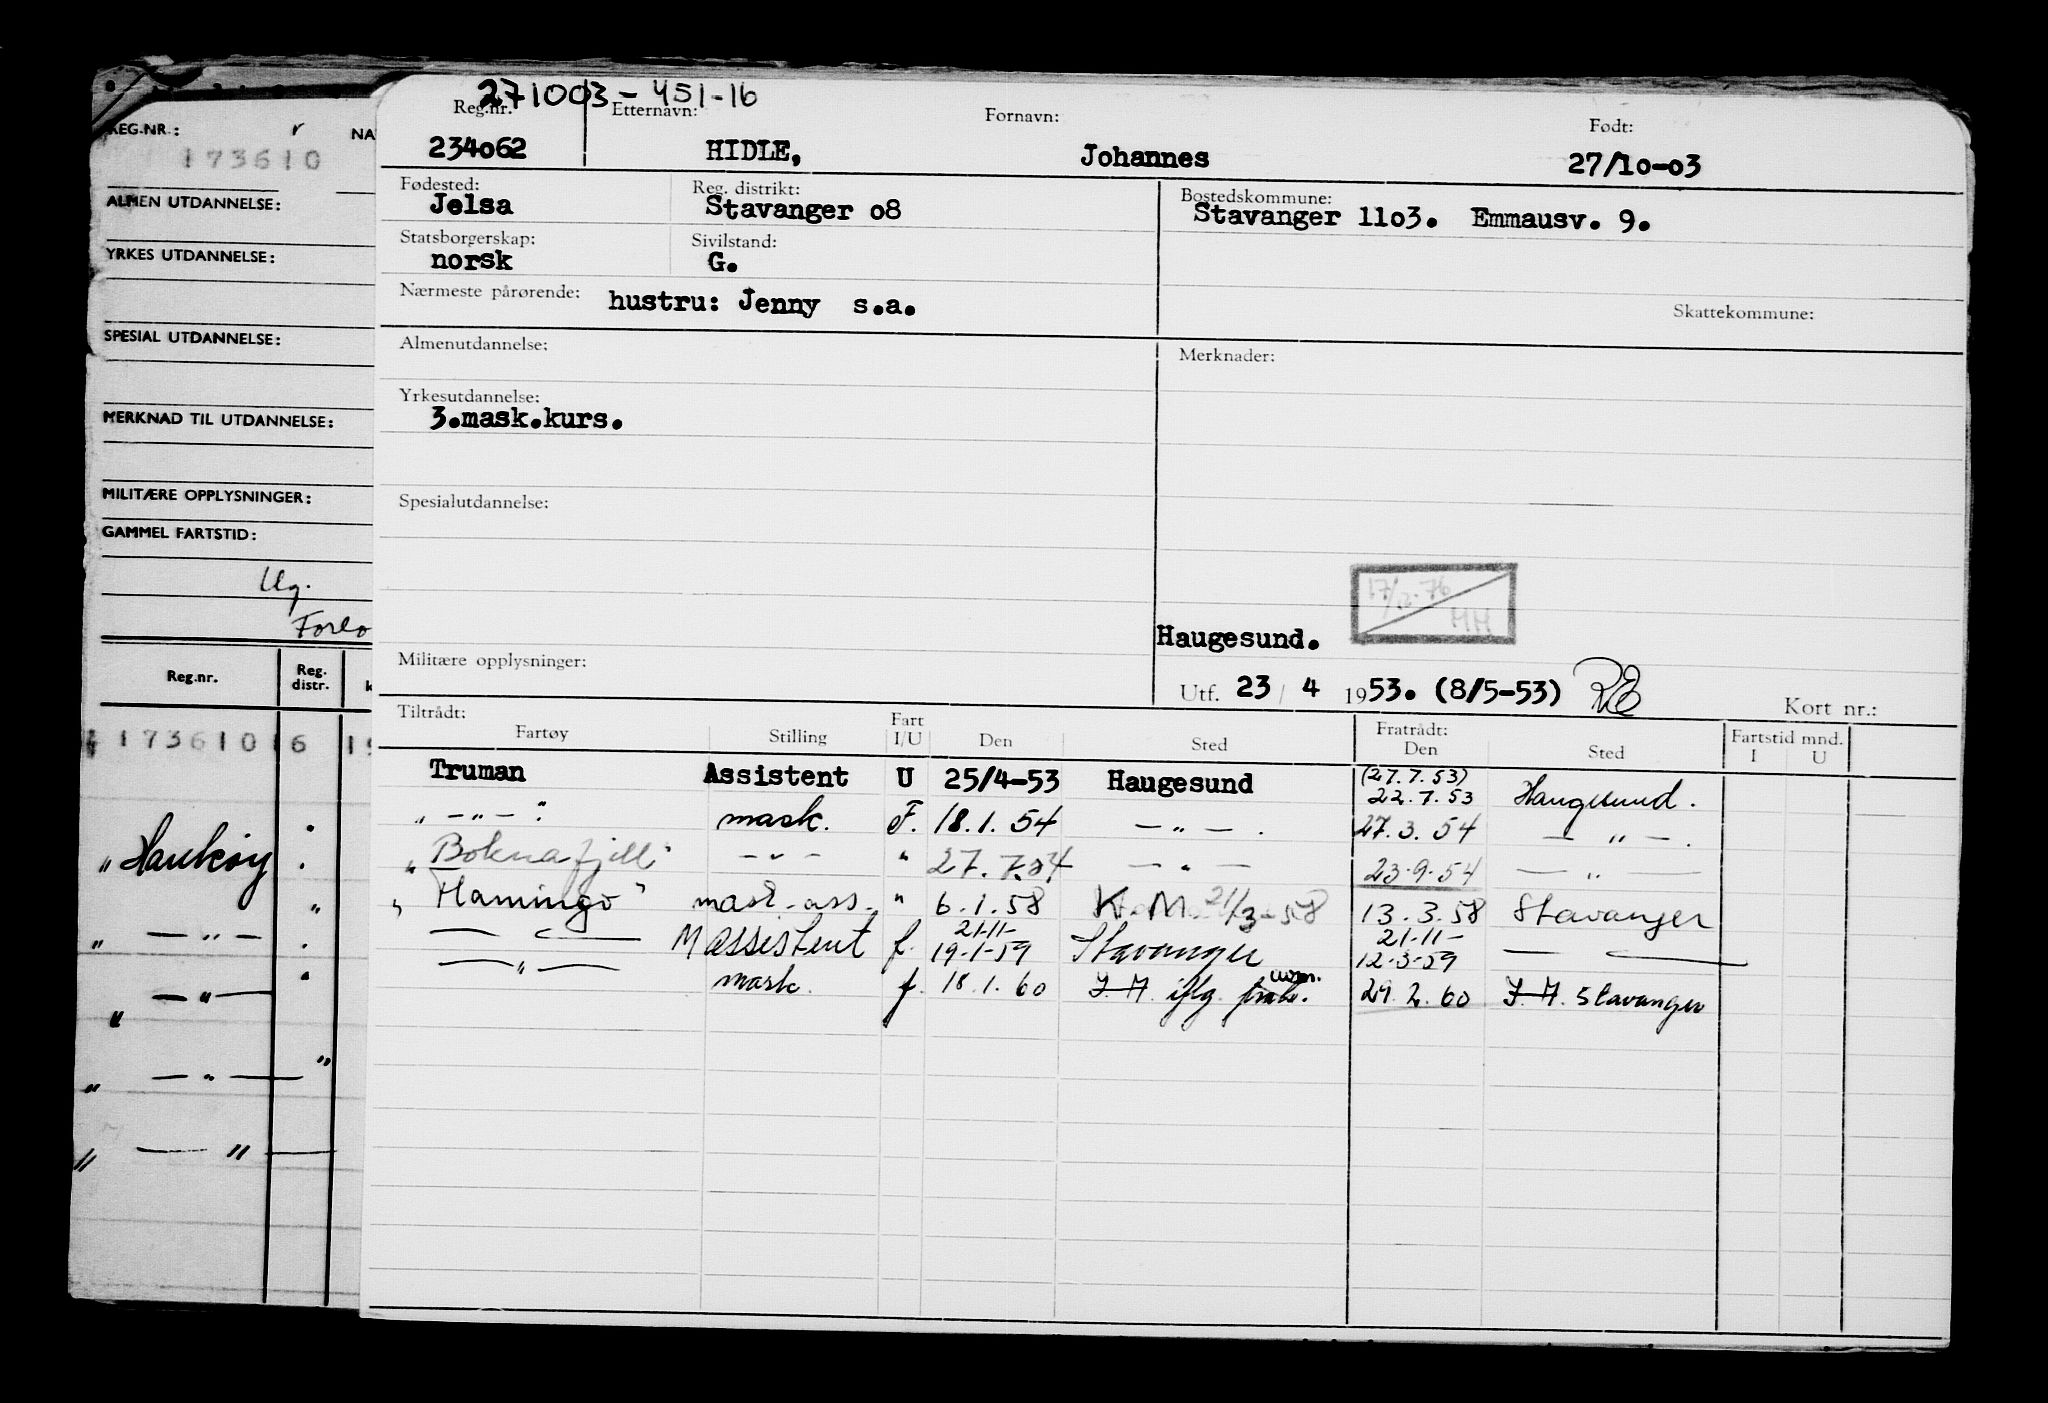 REG.NR.:
173610
ALMEN UTDANNELSE:
YRKES UTDANNELSE:
SPESIAL UTDANNELSE:
MERKNAD TIL UTDANNELSE:
MILITÆRE OPPLYSNINGER:
GAMMEL FARTSTID:
Reg.nr. Reg. distr.
173610 6
271003-451-16
Reg.nr. Etternavn: Fornavn: Født:
234o62 HIDLE, Johannes 27/1o-o3
Fødested: Reg. distrikt: Bostedskommune:
Jelsa Stavanger o8 Stavanger 11o3. Emmausv. 9.
Statsborgerskap: Sivilstand:
norsk G.
Nærmeste pårørende: hustru: Jenny s.a. Skattekommune:
Almenutdannelse: Merknader:
Yrkesutdannelse:
3.mask.kurs.
Spesialutdannelse:
17/12.76
HH
Haugesund.
Militære opplysninger:
Utf. 23 / 4 1953. (8/5-53) Kort nr.:
Tiltrådt: Fart Fratrådt: Fartstid mnd.
Fartøy Stilling I/U Den Sted Den Sted I U
Truman Assistent U 25/4-53 Haugesund (27.7.53) 22.7.53 Haugesund.
" -"- " mask. F. 18.1.54 -"-. 27.3.54 -"-.
"Boknafjell" -"- " 27.7.54 -"- 23.9.54 -"-
"Flamingo" mask-ass. " 6.1.58 K.M. 21/3-58 13.3.58 Stavanger
21-11- 21-11-
Massistent f. 19-1-59 Stavanger 12-3-59
-"- mask. f. 18.1.60 J.M. iflg. 29.2.60 J.M. Stavanger